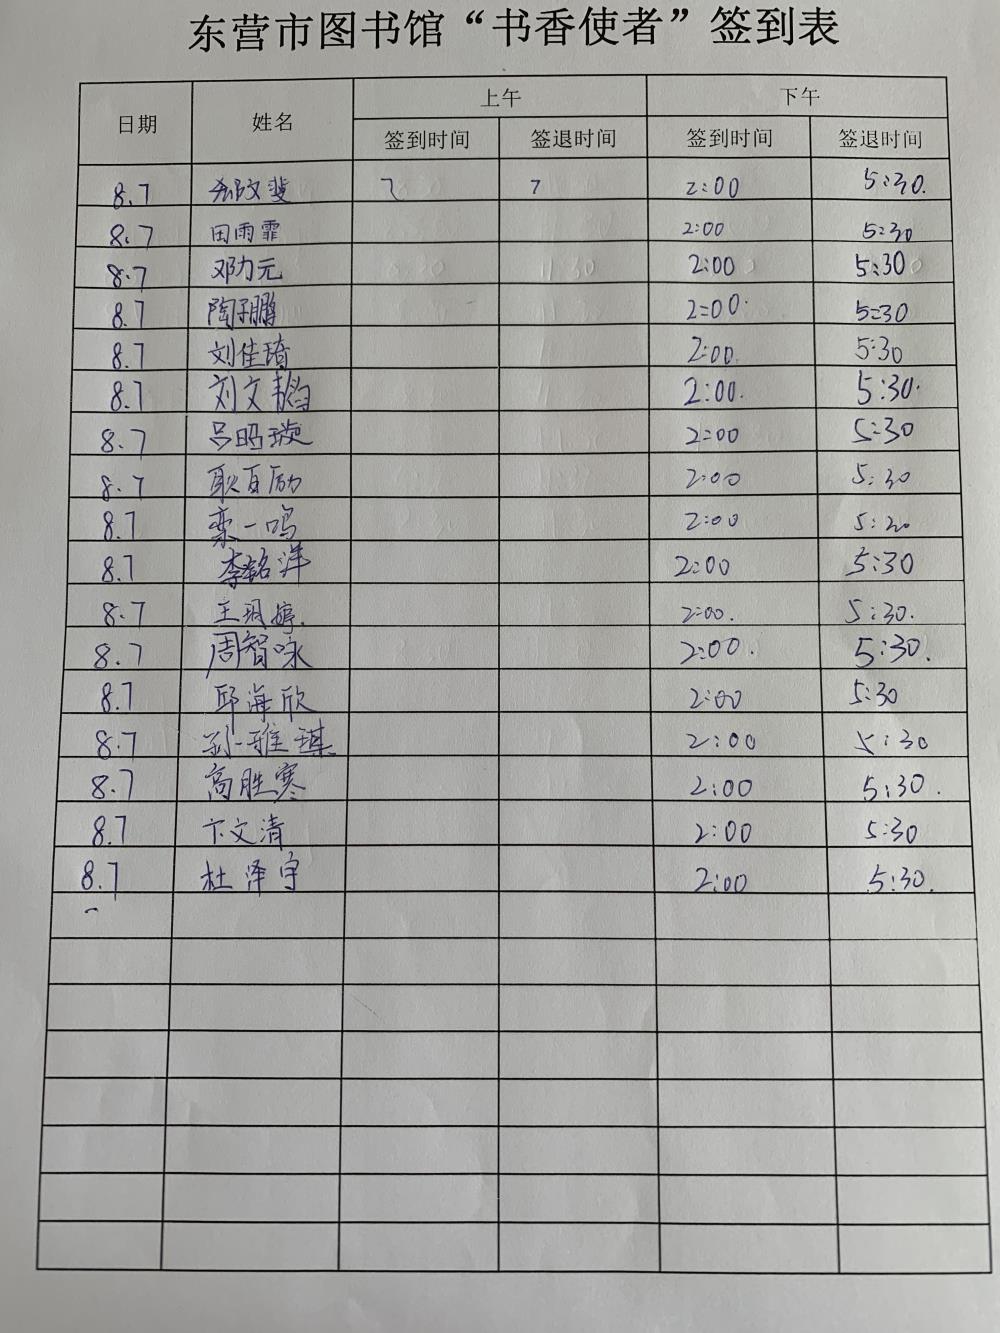 东营市图书馆“书香使者”签到表
日期 姓名 上午 下午
签到时间 签退时间 签到时间 签退时间
8.7 文斐 7 7 2:00 5:30.
8.7 田雨霏 2:00 5:30
8.7 邓力元 2:00 5:30
8.7 陶子鹏 2:00. 5:30
8.7 刘佳琦 2:00. 5:30
8.7 刘文韬 2:00. 5:30.
8.7 吕昭璇 2:00 5:30
8.7 耿百励 2:00 5:30
8.7 栾一鸣 2:00 5:20
8.7 李铭洋 2:00 5:30
8.7 王玥婷. 2:00. 5:30.
8.7 周智咏 2:00. 5:30.
8.7 邱海欣 2:00 5:30
8.7 孙雅琪 2:00 5:30
8.7 高胜寒 2:00 5:30.
8.7 卞文清 2:00 5:30
8.7 杜泽宇 2:00 5:30.